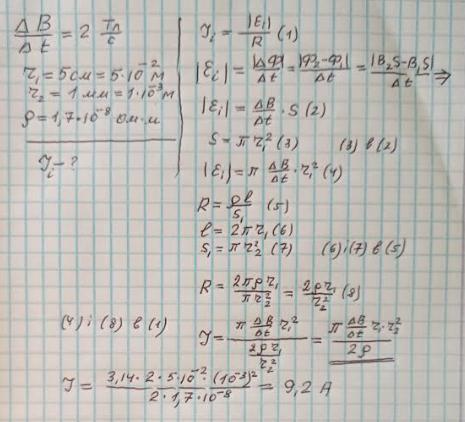 ΔB/Δt = 2 Тл/с
τ₁ = 5 см = 5·10⁻² м
τ₂ = 1 мм = 1·10⁻³ м
ρ = 1,7·10⁻⁸ ом·м
Ji – ?
Ji = |Ei|/R (1)
|Ei| = |ΔФ|/Δt = |Ф₂-Ф₁|/Δt = |B₂S-B₁S|/Δt ⇒
|Ei| = ΔB/Δt · S (2)
S = π τ₁² (3) (3) в (2)
|Ei| = π ΔB/Δt · τ₁² (4)
R = ρl/S₁ (5)
l = 2π τ₁ (6)
S₁ = π τ₂² (7) (6) i (7) в (5)
R = 2πρτ₁/πτ₂² = 2ρτ₁/τ₂² (8)
(4) i (8) в (1) J = π ΔB/Δt τ₁² / (2ρτ₁/τ₂²) = π ΔB/Δt τ₁·τ₂² / 2ρ
J = 3,14·2·5·10⁻²·(10⁻³)² / 2·1,7·10⁻⁸ = 9,2 А